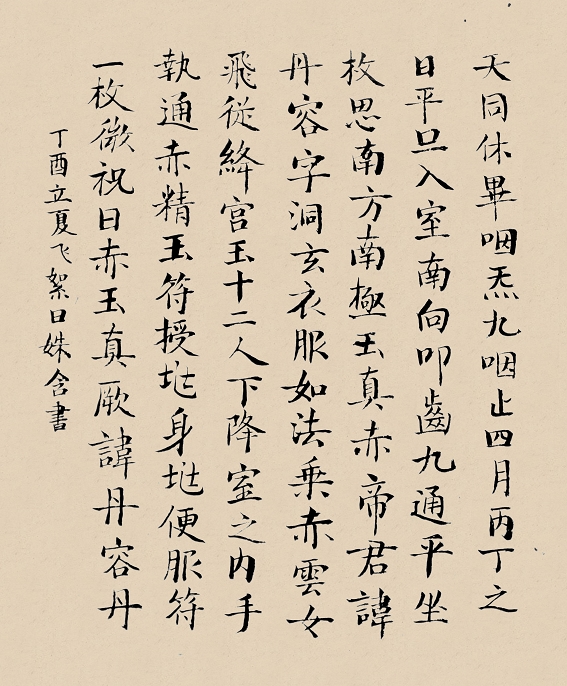 天同休畢咽炁九咽止四月丙丁之
日平旦入室南向叩齒九通平坐
枚思南方南極玉真赤帝君諱
丹容字洞玄衣服如法乗赤雲女
飛従絳宫玉十二人下降室之内手
執通赤精玉符授𡉏身𡉏便服符
一枚微祝曰赤玉真厥諱丹容丹
丁酉立夏飞絮日姝含書